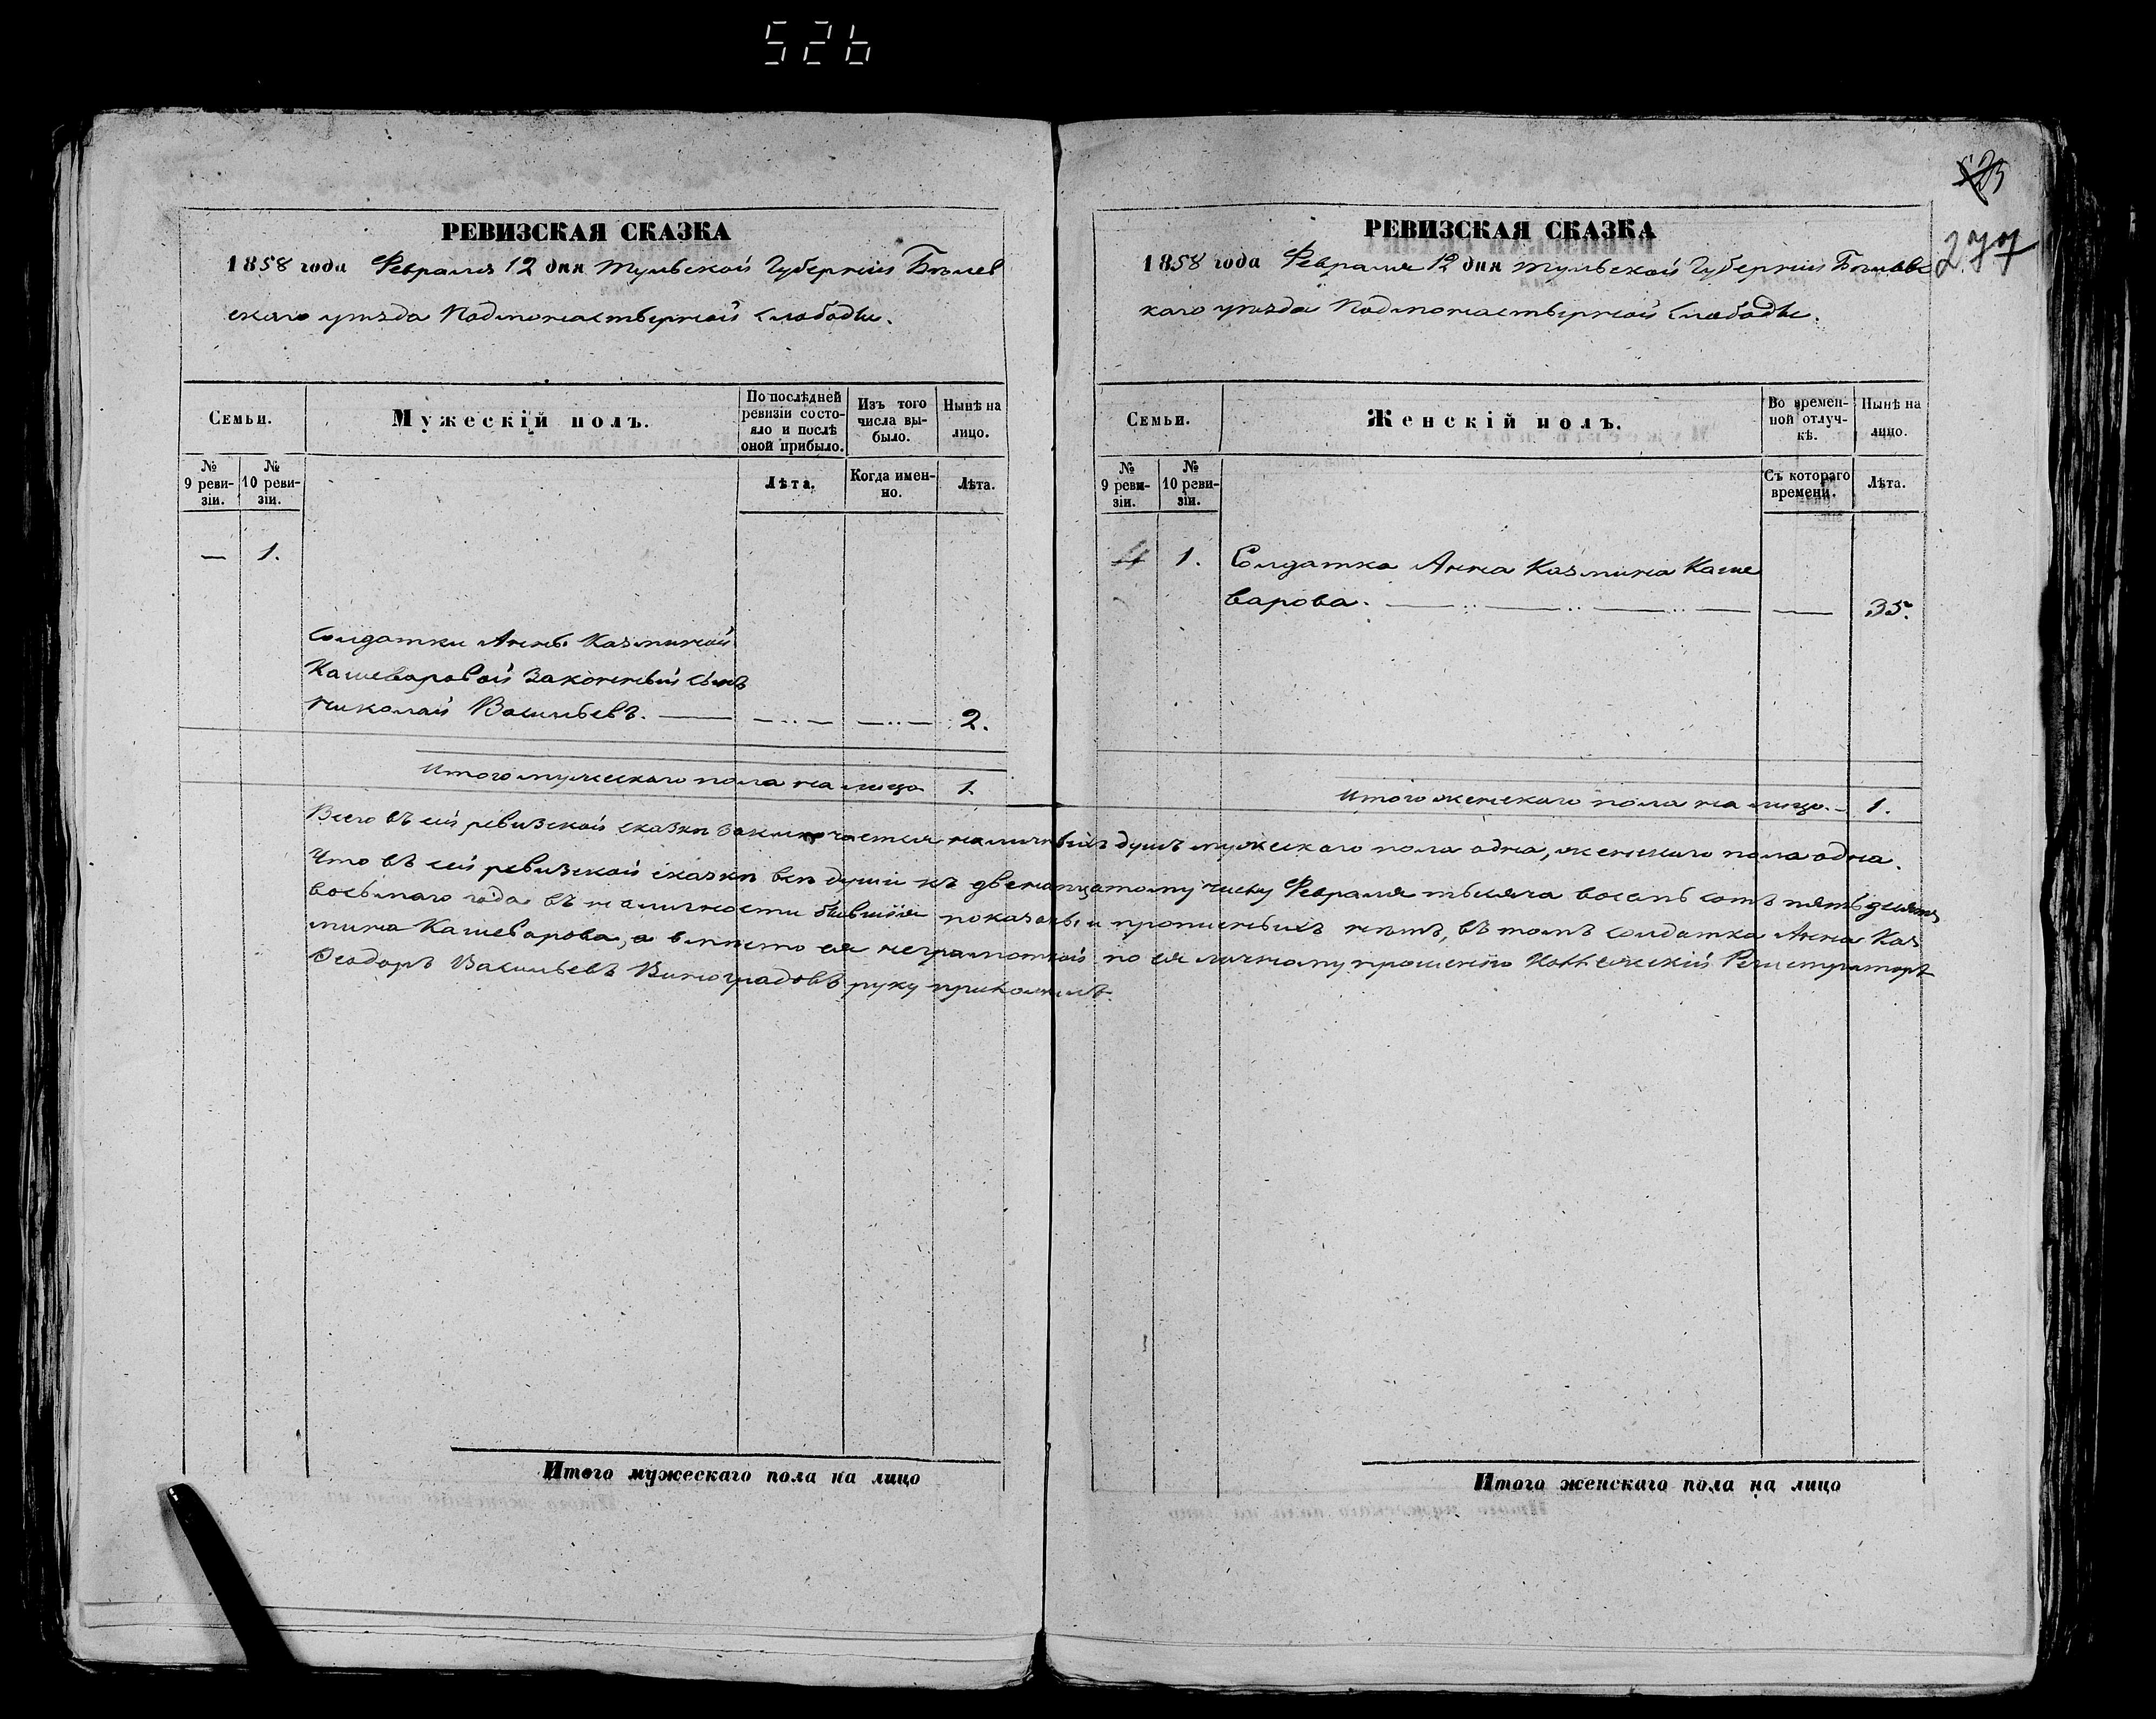 526
РЕВИЗСКАЯ СКАЗКА
1858 года Февраля 12 дня Тульской Губерніи Бѣлев
скаго уѣзда Подмонастырной Слободы.
Семьи.
Мужескій полъ.
По послѣдней ревизіи состояло и послѣ оной прибыло.
Изъ того числа выбыло.
Нынѣ на лицо.
№ 9 ревизіи.
№ 10 ревизіи.
Лѣта.
Когда именно.
Лѣта.
— 1.
Солдатки Анны Казминой
Кашеваровой законный сынъ
Николай Васильевъ. — 2.
Итого мужескаго пола на лицо 1.
277
РЕВИЗСКАЯ СКАЗКА
1858 года Февраля 12 дня Тульской Губерніи Бѣлевс
каго уѣзда Подмонастырной Слободы.
Семьи.
Женскій полъ.
Во временной отлучкѣ.
Нынѣ на лицо.
№ 9 ревизіи.
№ 10 ревизіи.
Съ котораго времени.
Лѣта.
1. Солдатка Анна Казмина Каше
варова. — 35.
Итого женскаго пола на лицо. 1.
Всего въ сей ревизской сказкѣ заключается наличныхъ душъ мужескаго пола одна, женскаго пола одна.
Что въ сей ревизской сказкѣ всѣ души къ двенацатому числу Февраля тысяча восемь сотъ пятьдесятъ
восьмаго года въ наличности бывшія показаны и прописныхъ нѣтъ, въ томъ солдатка Анна Каз
мина Кашеварова, а вмѣсто ея неграмотной по ея личному прошенію Коллежскій Регистраторъ
Ѳеодоръ Васильевъ Виноградовъ руку приложилъ.
Итого мужескаго пола на лицо
Итого женскаго пола на лицо